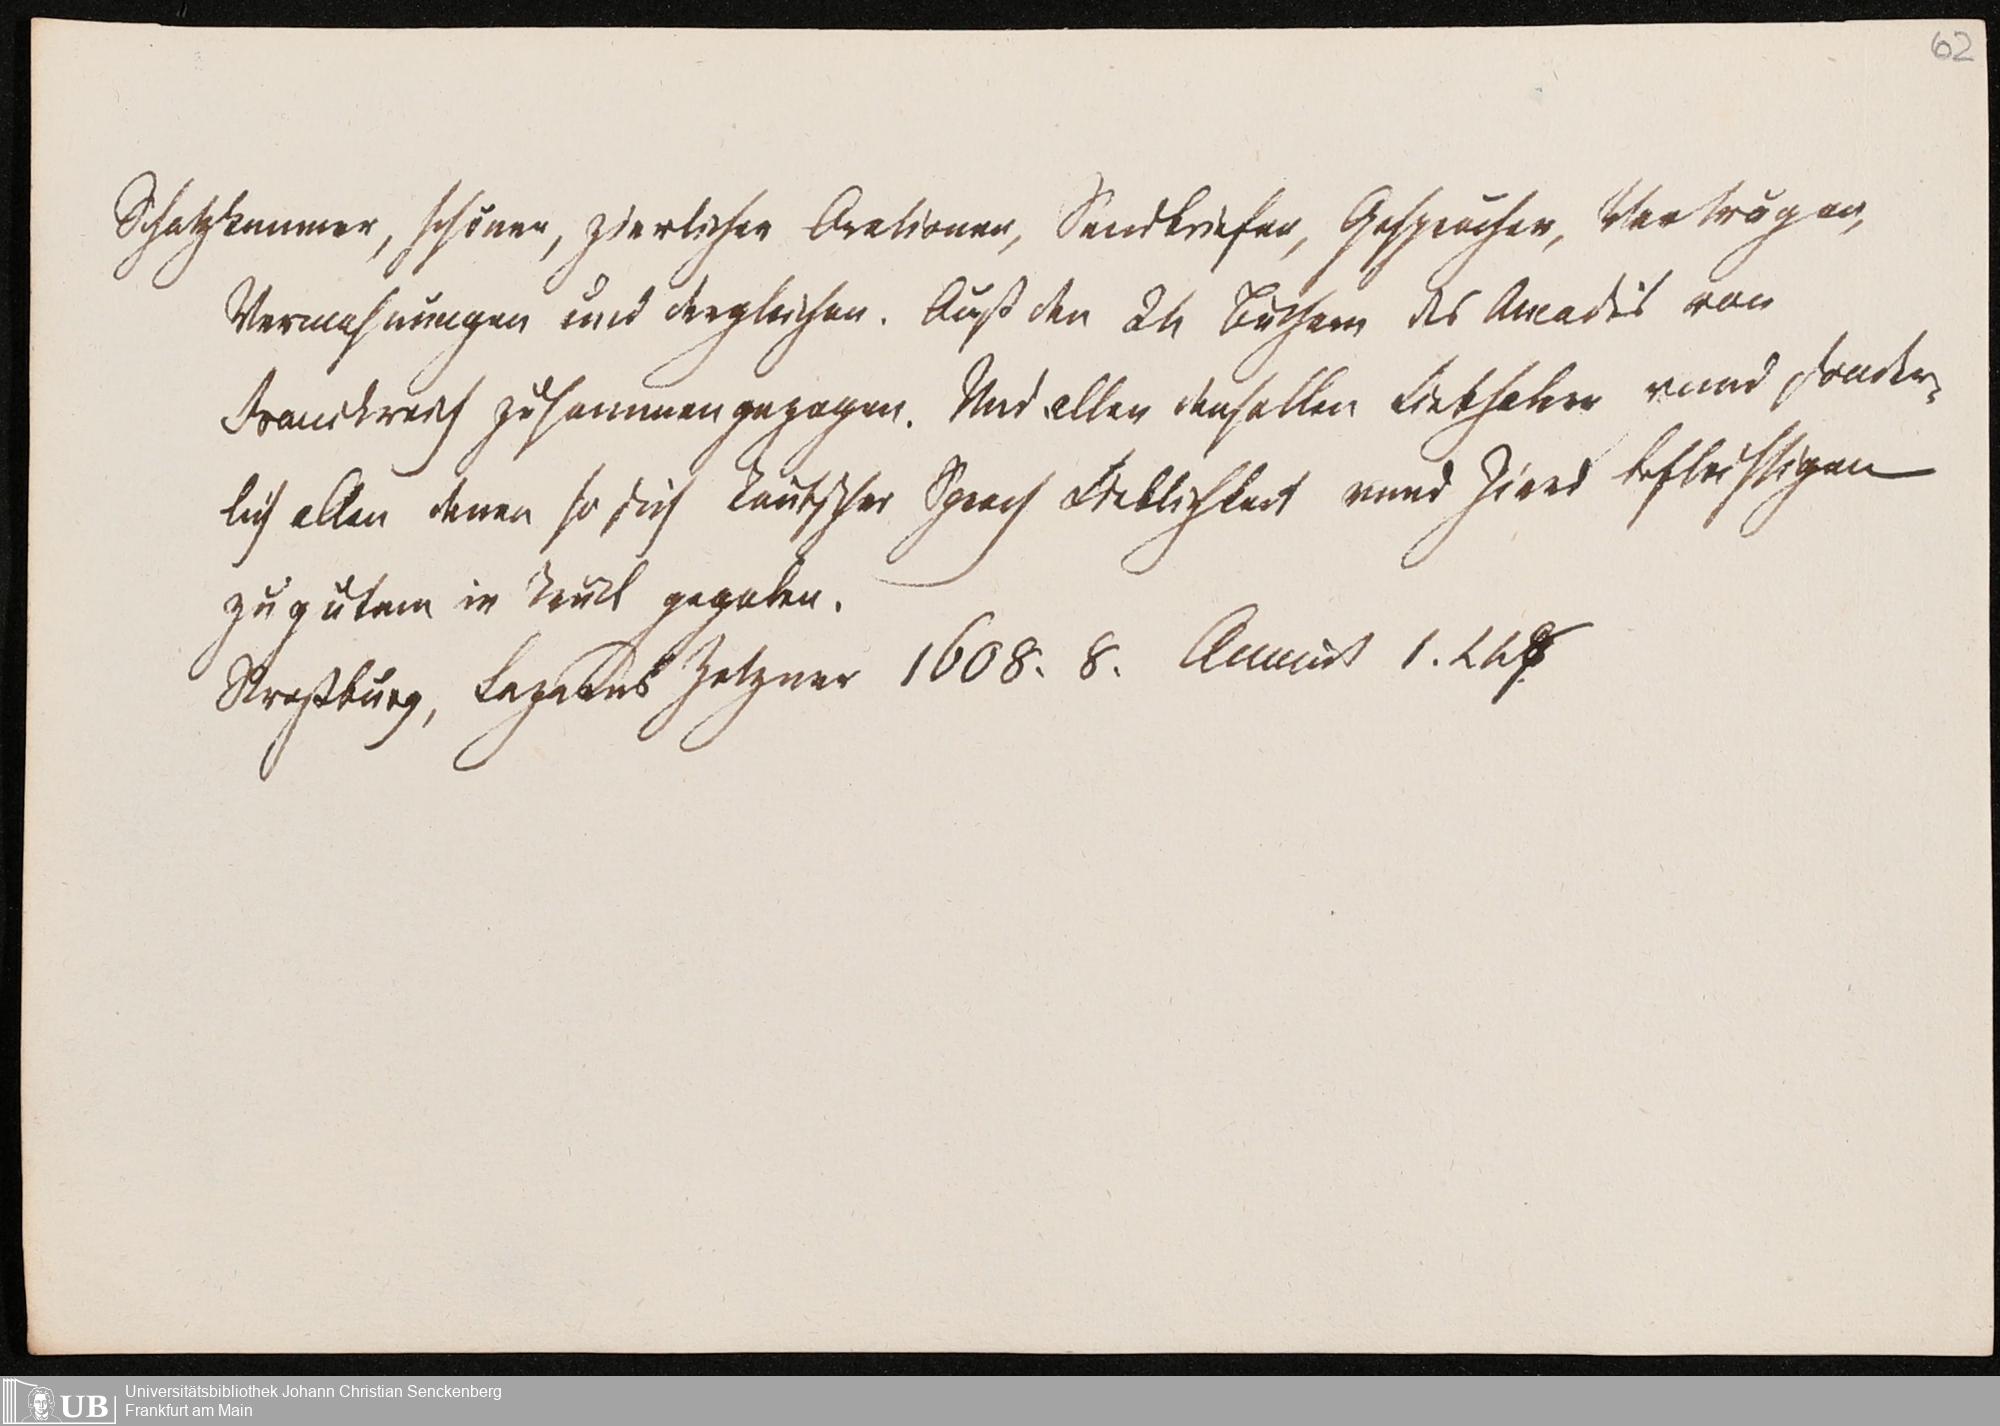 62
Schatzkammer, schöner, zierlicher Orationen, Sendbriefen, Gesprächen, Verträgen,
Vermahnungen und dergleichen. Auß den 24 Büchern des Amadis von
Franckreich zusammengezogen. Und allen derselben Liebhaber vnnd sonder-
lich allen denen so sich Teutscher Sprach Lieblichkeit vnnd Zierd befleissigen
zu gutem in Truck gegeben.
Straßburg, Lazarus Zetzner 1608. 8.
Universitätsbibliothek Johann Christian Senckenberg
Frankfurt am Main
UB